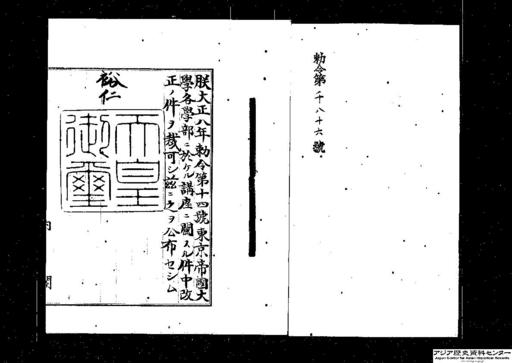 勅令第二十八十六號
朕大正八年勅令第十四號東京帝國大
學各學部ニ於ケル講座ニ關スル件中改
正ノ件ヲ裁可シ茲ニ之ヲ公布セシム
裕仁
天皇
御璽
内閣
アジア歴史資料センター
Japan Center for Asian Historical Records